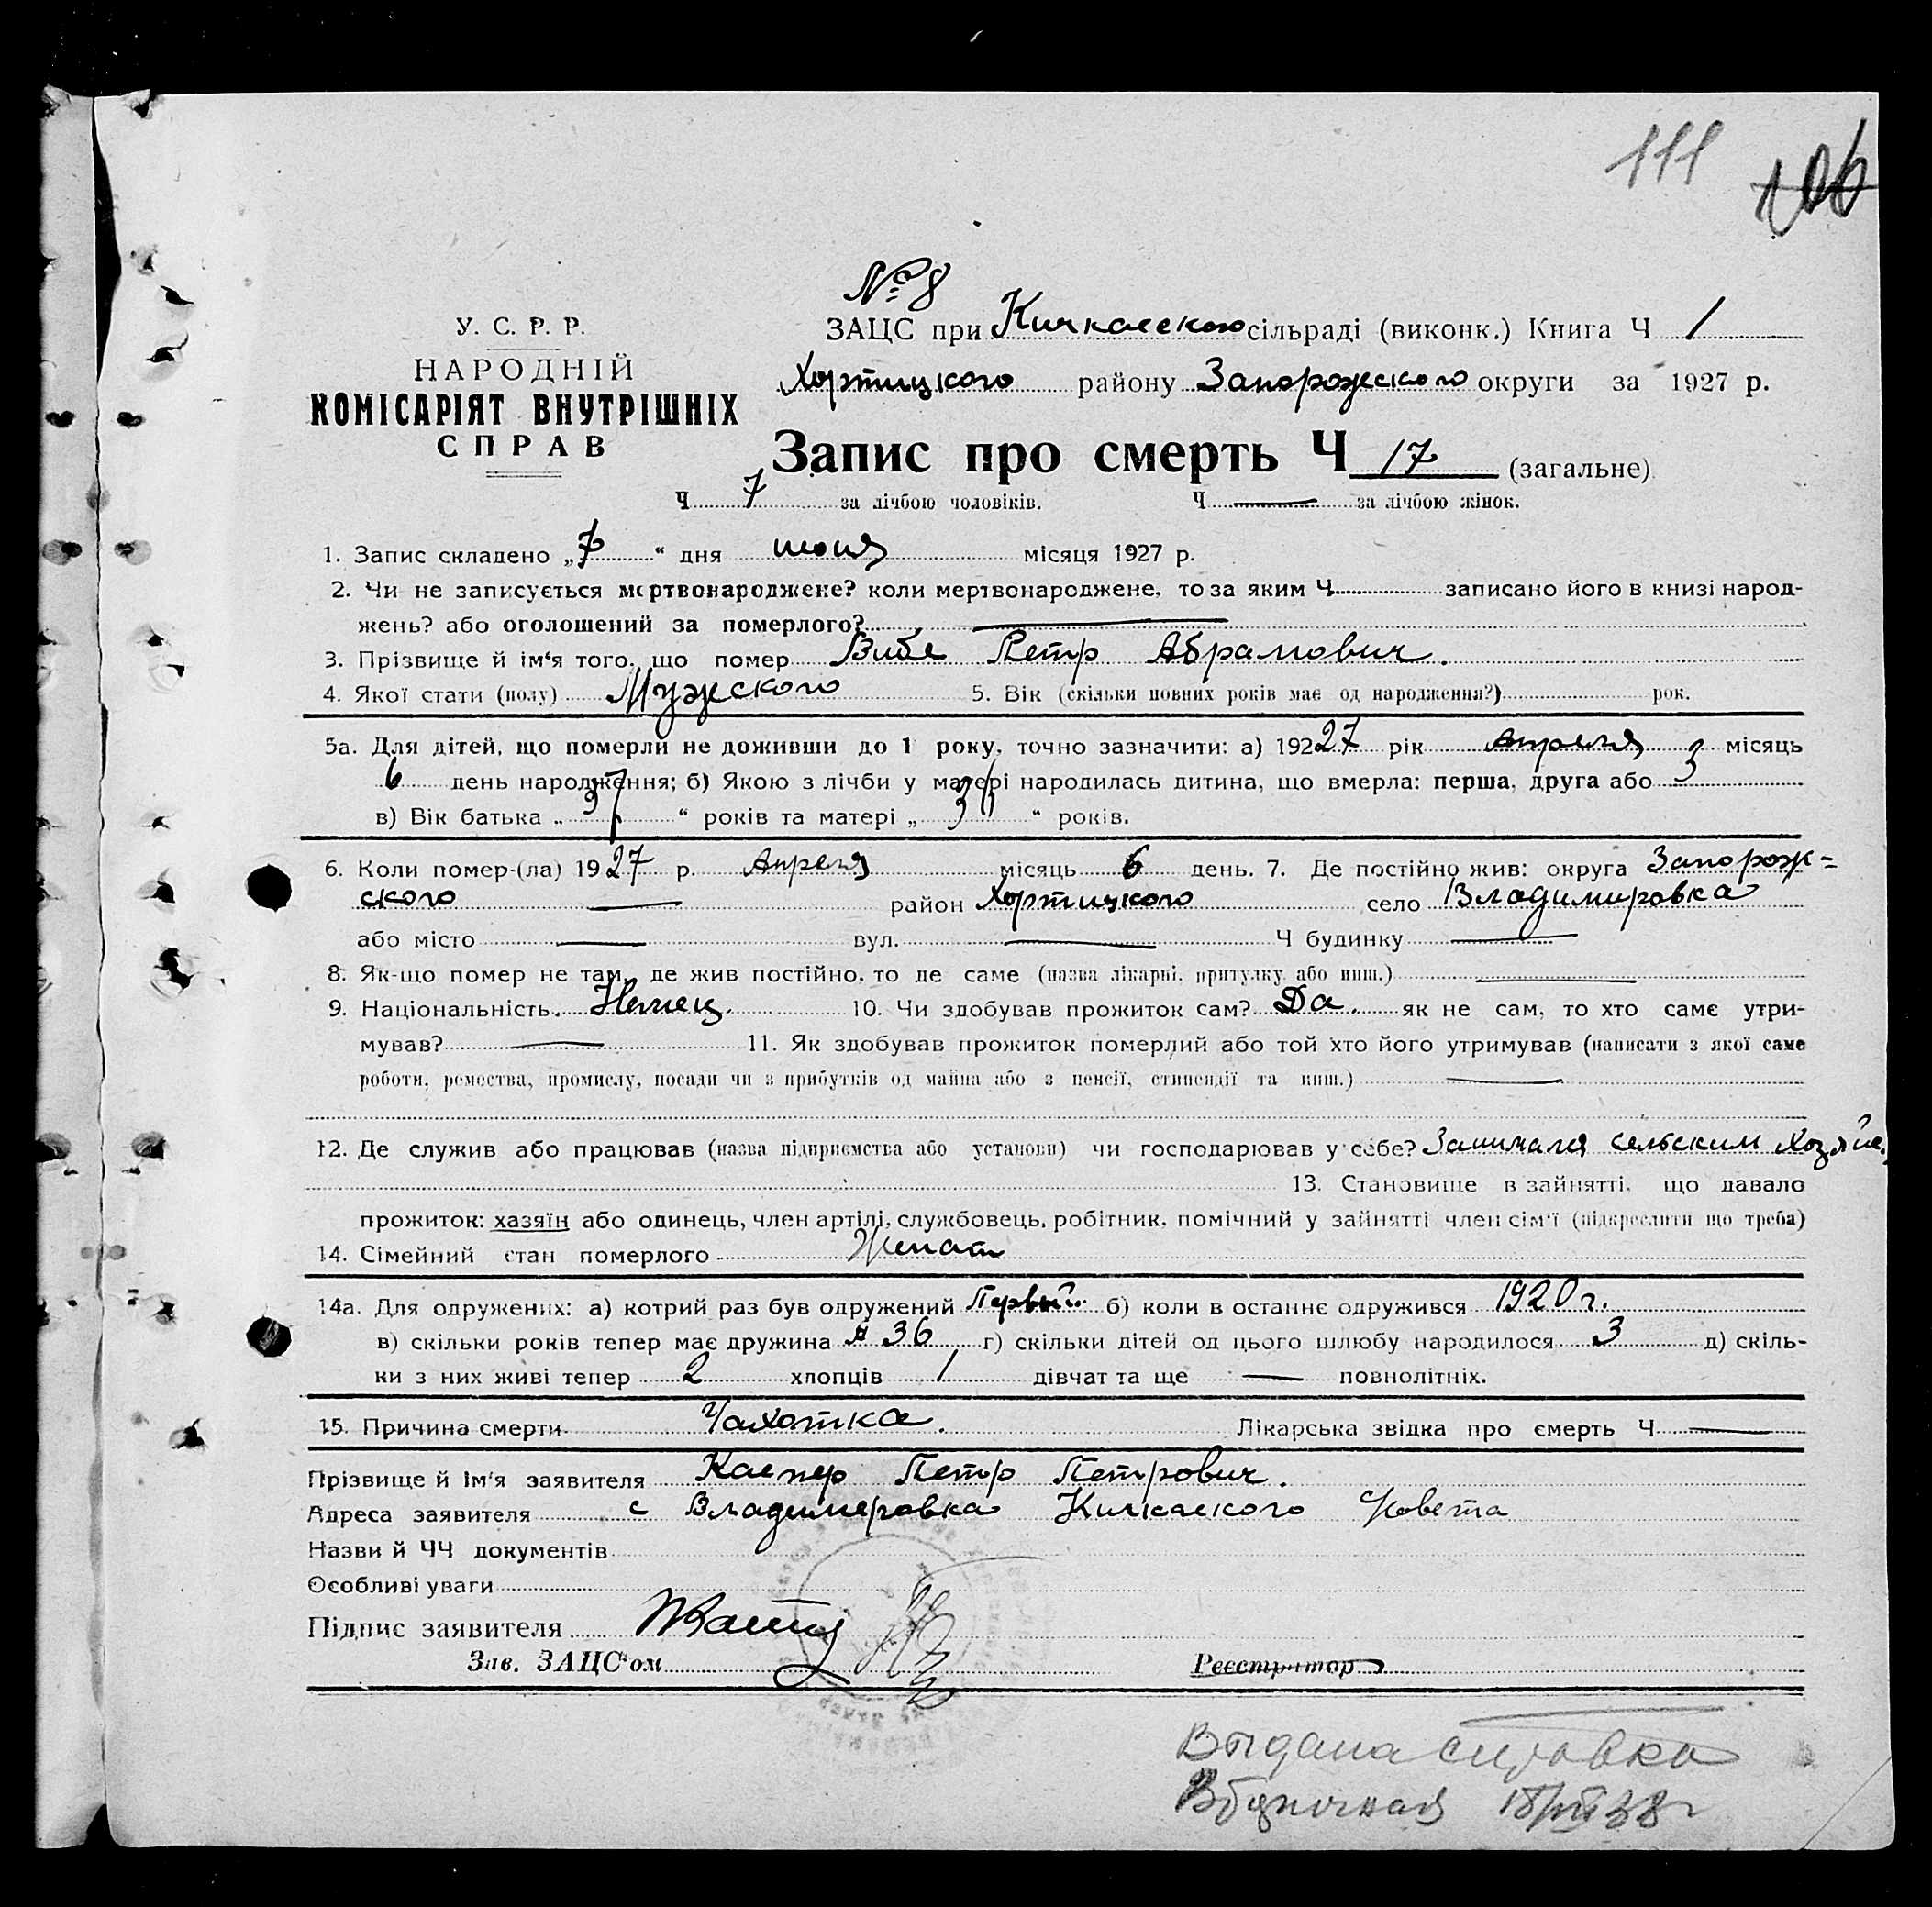 111 106
№ 8
У. С. Р. Р.
НАРОДНІЙ
КОМІСАРІЯТ ВНУТРІШНІХ
СПРАВ
ЗАЦС при Кичкасского сільраді (виконк.) Книга Ч 1
Хортицкого району Запорожского округи за 1927 р.
Запис про смерть Ч 17 (загальне)
Ч 7 за лічбою чоловіків. Ч — за лічбою жінок.
1. Запис складено „7“ дня июня місяця 1927 р.
2. Чи не записується мертвонароджене? коли мертвонароджене, то за яким Ч записано його в книзі народ-
жень? або оголошений за померлого? —
3. Прізвище й ім‘я того, що помер Вибе Петр Абрамович.
4. Якої стати (полу) Мужского 5. Вік (скільки повних років має од народження?) рок.
5а. Для дітей, що померли не доживши до 1 року, точно зазначити: а) 19227 рік Апреля 3 місяць
6 день народження; б) Якою з лічби у матері народилась дитина, що вмерла: перша, друга або 3
в) Вік батька „37“ років та матері „36“ років.
6. Коли помер-(ла) 1927 р. Апреля місяць 6 день. 7. Де постійно жив: округа Запорож=
ского — район Хортицкого село Владимировка
або місто — вул. — Ч будинку —
8. Як-що помер не там, де жив постійно, то де саме (назва лікарні, притулку або инш.) —
9. Національність. Немец. 10. Чи здобував прожиток сам? Да. як не сам, то хто саме утри-
мував? — 11. Як здобував прожиток померлий або той хто його утримував (написати з якої саме
роботи, ремества, промислу, посади чи з прибутків од майна або з пенсії, стипендії та инш.) —
12. Де служив або працював (назва підприємства або установи) чи господарював у себе? Занимался сельским хозяйс.
13. Становище в зайнятті, що давало
прожиток: хазяїн або одинець, член артілі, службовець, робітник, помічний у зайнятті член сім‘ї (підкреслити що треба)
14. Сімейний стан померлого Женат
14а. Для одружених: а) котрий раз був одружений Первый б) коли в останнє одружився 1920 г.
в) скільки років тепер має дружина 36 г) скільки дітей од цього шлюбу народилося 3 д) скіль-
ки з них живі тепер 2 хлопців 1 дівчат та ще — повнолітніх.
15. Причина смерти Чахотка. Лікарська звідка про смерть Ч —
Прізвище й Ім‘я заявителя Каспер Петр Петрович.
Адреса заявителя с Владимеровка Кичкаского Совета
Назви й ЧЧ документів
Особливі уваги
Підпис заявителя
Зав. ЗАЦС‘ом Реєстратор
Выдана справка
18/VII 38 г